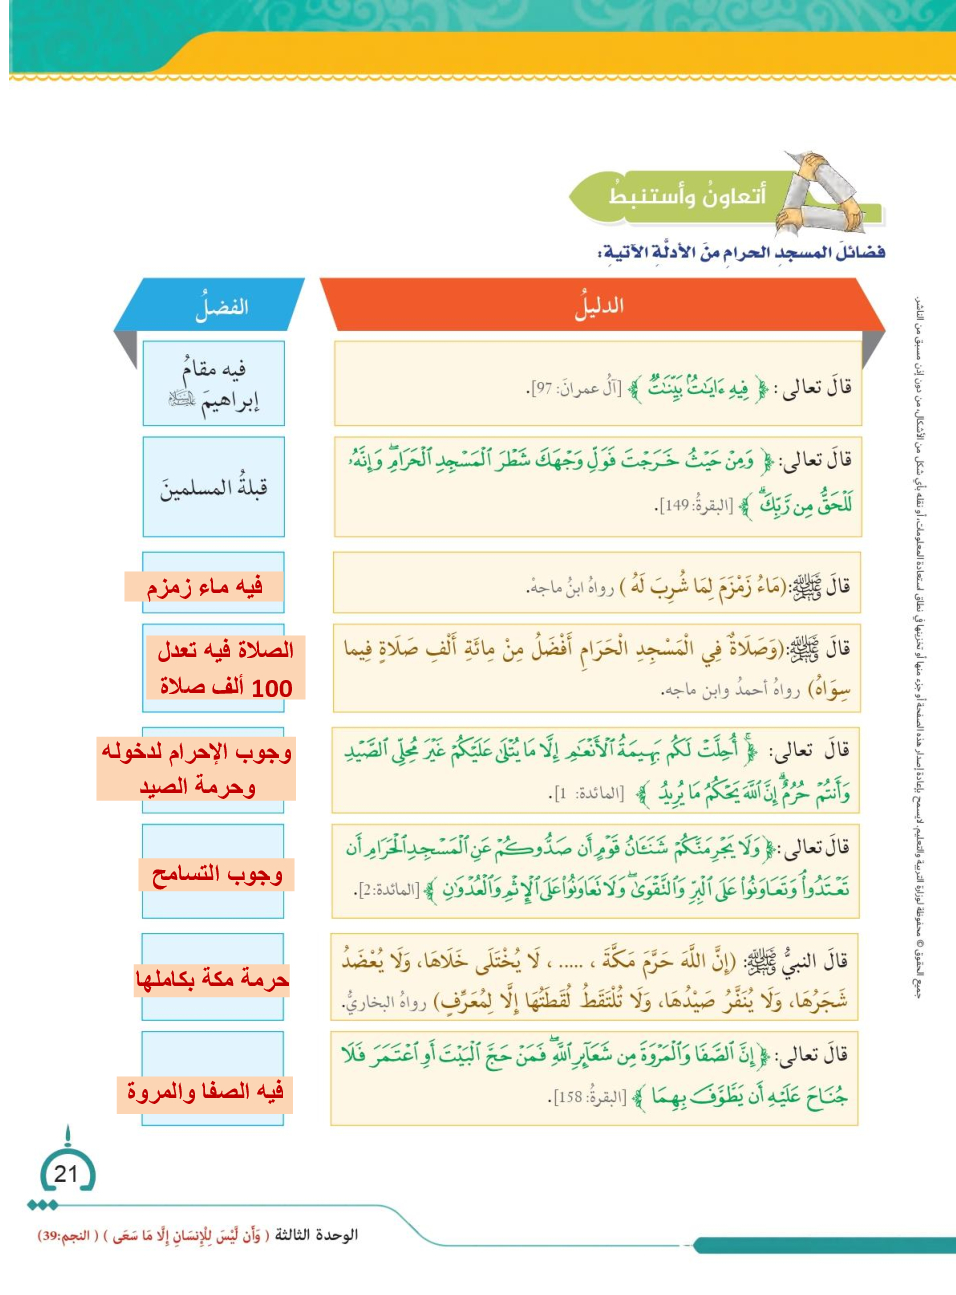 أتعاونُ وأستنبطُ
فضائلَ المسجدِ الحرامِ منَ الأدلَّةِ الآتيةِ:
الدليلُ
الفضلُ
قالَ تعالى: ﴿ فِيهِ ءَايَٰتُۢ بَيِّنَٰتٞ ﴾ [آلُ عمرانَ: 97].
فيه مقامُ
إبراهيمَ عليه السلام
قالَ تعالى: ﴿ وَمِنْ حَيْثُ خَرَجْتَ فَوَلِّ وَجْهَكَ شَطْرَ ٱلْمَسْجِدِ ٱلْحَرَامِۖ وَإِنَّهُۥ
لَلْحَقُّ مِن رَّبِّكَۗ ﴾ [البقرةُ: 149].
قبلةُ المسلمينَ
قالَ ﷺ:(مَاءُ زَمْزَمَ لِمَا شُرِبَ لَهُ ) رواهُ ابنُ ماجهْ.
فيه ماء زمزم
قالَ ﷺ:(وَصَلَاةٌ فِي الْمَسْجِدِ الْحَرَامِ أَفْضَلُ مِنْ مِائَةِ أَلْفِ صَلَاةٍ فِيما
سِوَاهُ) رواهُ أحمدُ وابن ماجه.
الصلاة فيه تعدل
100 ألف صلاة
قالَ تعالى: ﴿ أُحِلَّتْ لَكُم بَهِيمَةُ ٱلْأَنْعَٰمِ إِلَّا مَا يُتْلَىٰ عَلَيْكُمْ غَيْرَ مُحِلِّى ٱلصَّيْدِ
وَأَنتُمْ حُرُمٌۗ إِنَّ ٱللَّهَ يَحْكُمُ مَا يُرِيدُ ﴾ [المائدة: 1].
وجوب الإحرام لدخوله
وحرمة الصيد
قالَ تعالى:﴿ وَلَا يَجْرِمَنَّكُمْ شَنَـَٔانُ قَوْمٍ أَن صَدُّوكُمْ عَنِ ٱلْمَسْجِدِ ٱلْحَرَامِ أَن
تَعْتَدُواْۘ وَتَعَاوَنُواْ عَلَى ٱلْبِرِّ وَٱلتَّقْوَىٰۖ وَلَا تَعَاوَنُواْ عَلَى ٱلْإِثْمِ وَٱلْعُدْوَٰنِ ﴾ [المائدة:2].
وجوب التسامح
قالَ النبيُّ ﷺ: (إِنَّ اللَّهَ حَرَّمَ مَكَّةَ ، ..... ، لَا يُخْتَلَى خَلَاهَا، وَلَا يُعْضَدُ
شَجَرُهَا، وَلَا يُنَفَّرُ صَيْدُهَا، وَلَا تُلْتَقَطُ لُقَطَتُهَا إِلَّا لِمُعَرِّفٍ) رواهُ البخاريُّ.
حرمة مكة بكاملها
قالَ تعالى:﴿ إِنَّ ٱلصَّفَا وَٱلْمَرْوَةَ مِن شَعَآئِرِ ٱللَّهِۖ فَمَنْ حَجَّ ٱلْبَيْتَ أَوِ ٱعْتَمَرَ فَلَا
جُنَاحَ عَلَيْهِ أَن يَطَّوَّفَ بِهِمَا ﴾ [البقرةُ: 158].
فيه الصفا والمروة
جميع الحقوق © محفوظة لوزارة التربية والتعليم. لايسمح بإعادة إصدار هذه الصفحة أو جزء منها أو تخزينها في نطاق استعادة المعلومات، أو نقله بأي شكل من الأشكال، من دون إذن مسبق من الناشر.
21
الوحدة الثالثة ( وَأَن لَّيْسَ لِلْإِنسَانِ إِلَّا مَا سَعَى ) ( النجم:39)